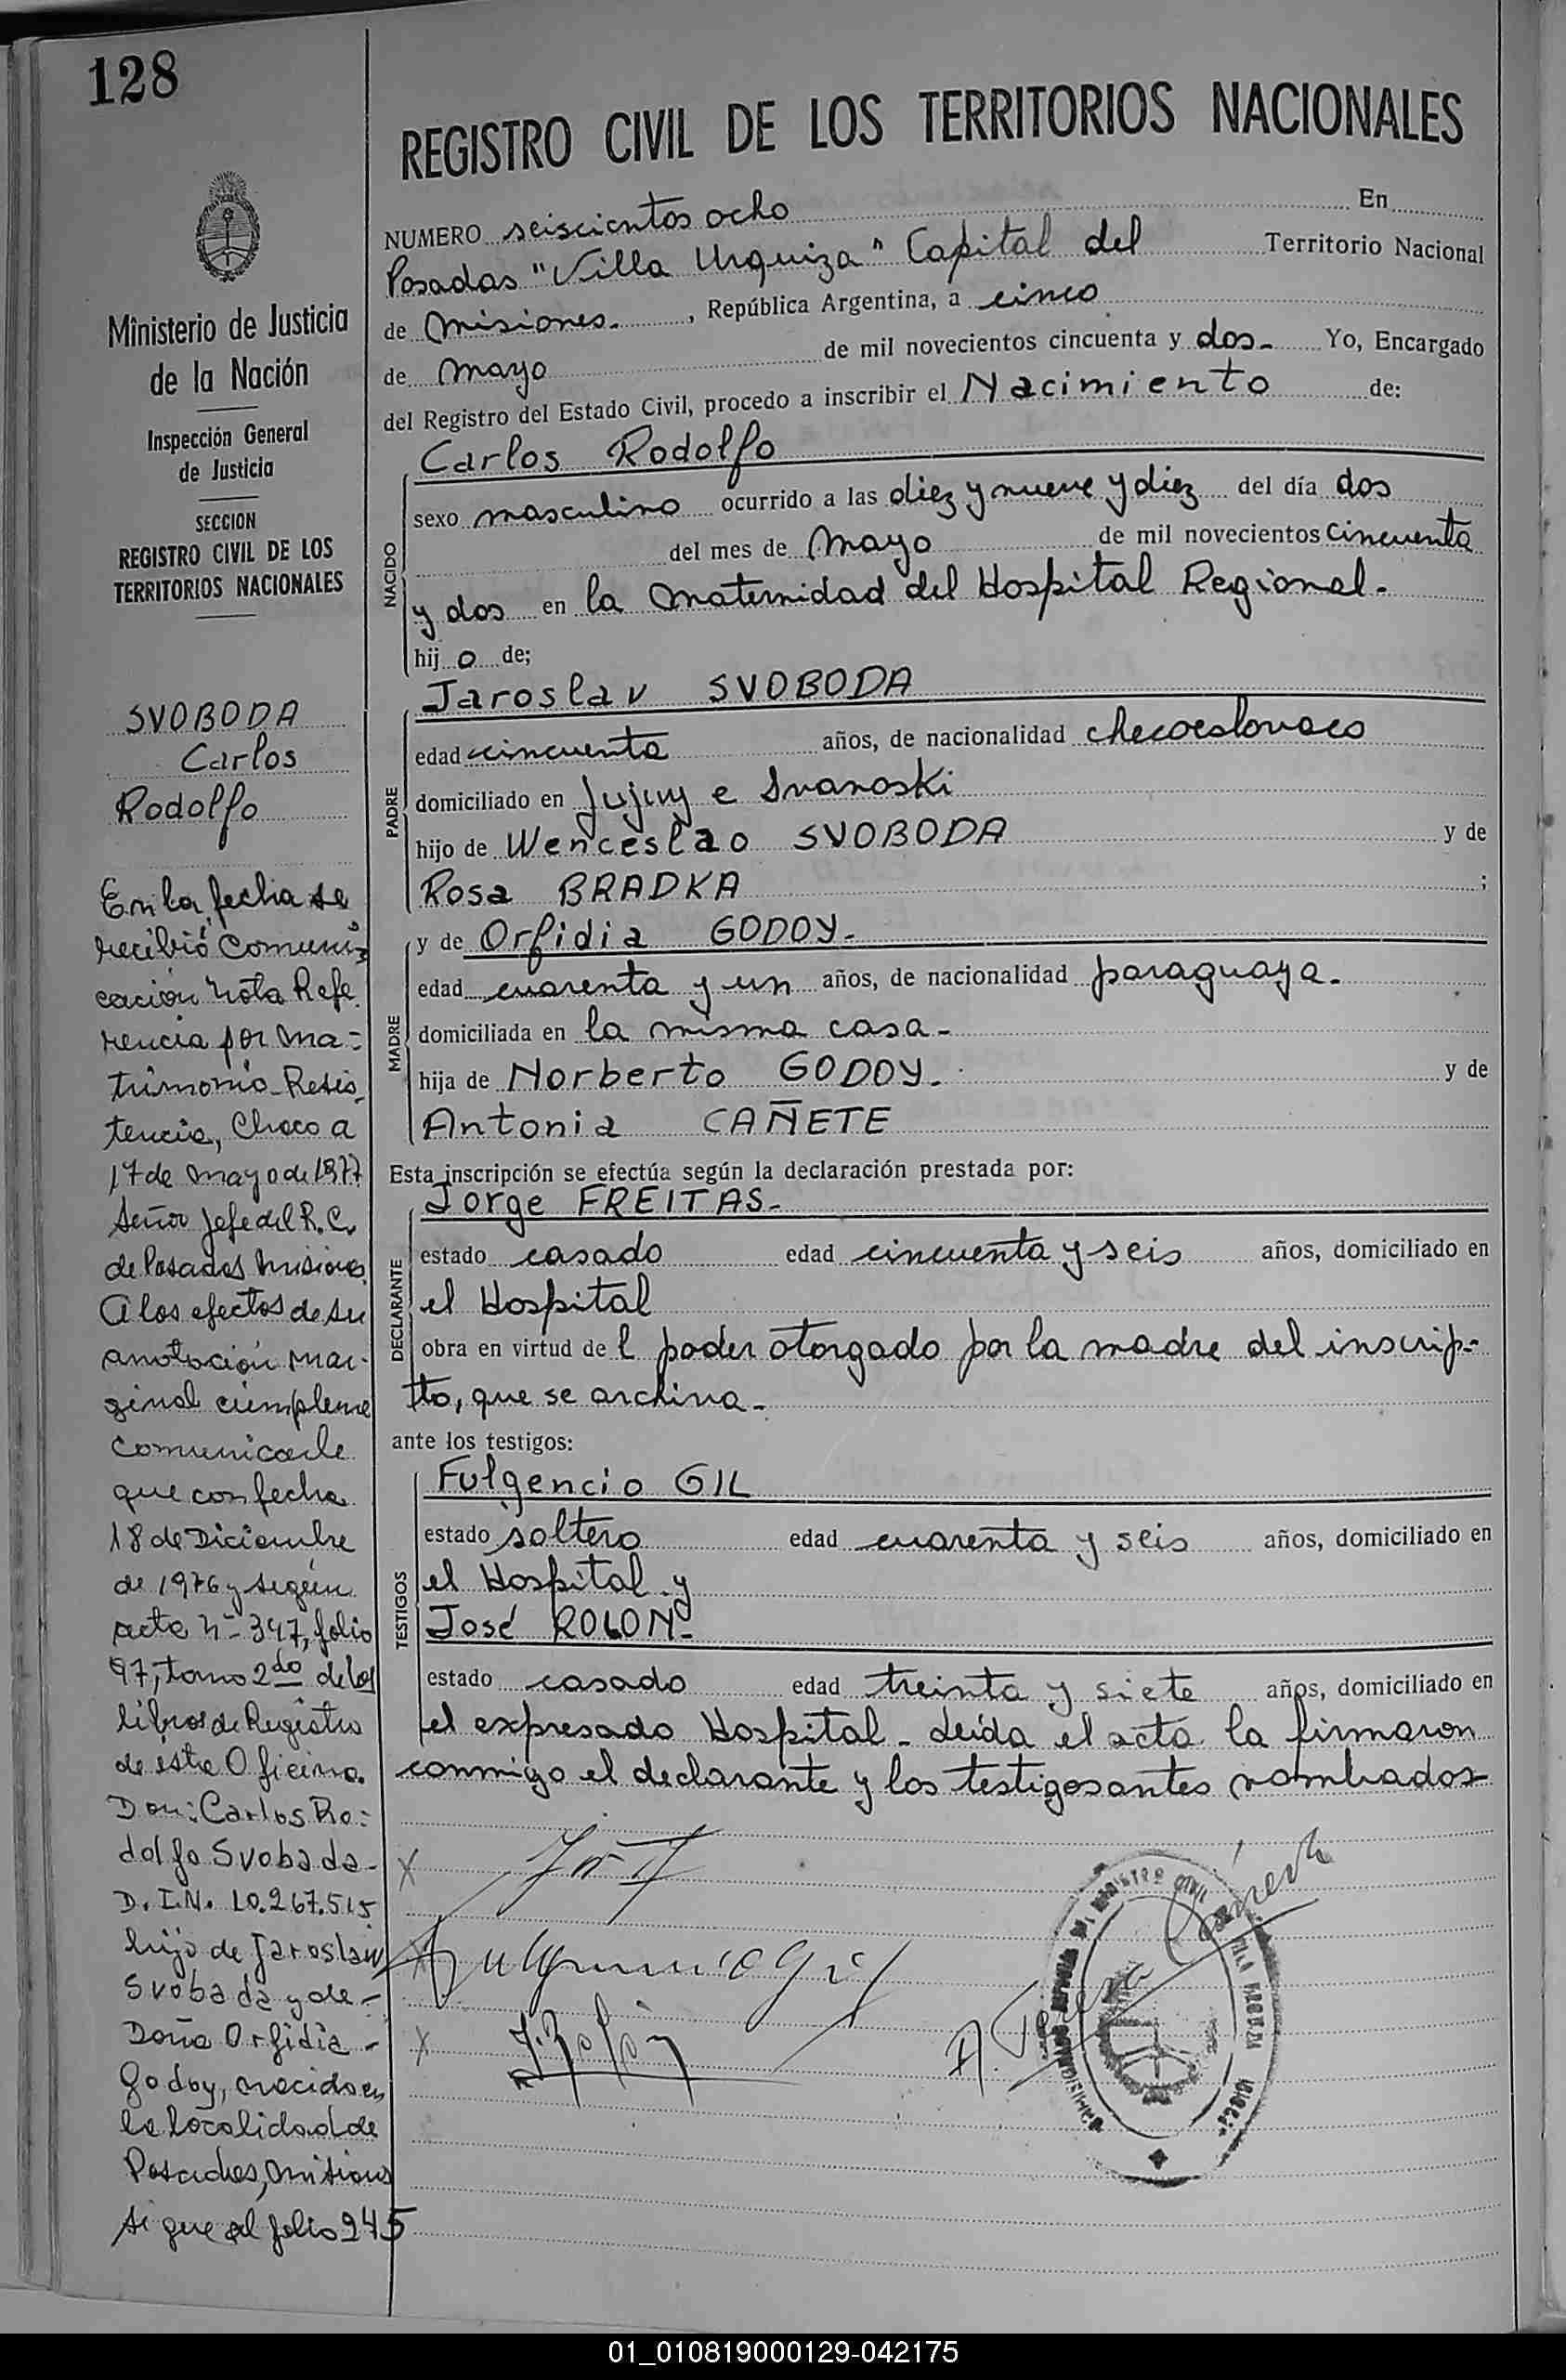 128
REGISTRO CIVIL DE LOS TERRITORIOS NACIONALES
Ministerio de Justicia
de la Nación
Inspección General
de Justicia
SECCION
REGISTRO CIVIL DE LOS
TERRITORIOS NACIONALES
SVOBODA
Carlos
Rodolfo
En la fecha se
recibió Comuni-
cación Nota Refe
rencia por Ma=
trimonio-Resis
tencia, Chaco a
17 de mayo de 1977
Señor Jefe del R.C.
de Posadas Misiones
A los efectos de su
anotación mar-
ginal cúmpleme
comunicarle
que con fecha
18 de Diciembre
de 1976 y según
acta nº 347, folio
97, tomo 2do de los
libros de Registro
de ésta Oficina.
Don: Carlos Ro=
dolfo Svoboda-
D.I.N. 10.267.515
hijo de Jaroslav
Svoboda y de-
Doña Orfidia-
Godoy, nacido en
la localidad de
Posadas, Misiones
sigue al folio 245
NUMERO seiscientos ocho En
Posadas "Villa Urquiza" Capital del Territorio Nacional
de Misiones.-, República Argentina, a cinco
de mayo de mil novecientos cincuenta y dos- Yo, Encargado
del Registro del Estado Civil, procedo a inscribir el Nacimiento de:
NACIDO
Carlos Rodolfo
sexo masculino ocurrido a las diez y nueve y diez del día dos
del mes de Mayo de mil novecientos cincuenta
y dos en la Maternidad del Hospital Regional.-
hijo de;
PADRE
Jaroslav SVOBODA
edad cincuenta años, de nacionalidad checoeslovaco
domiciliado en Jujuy e Ivanoski
hijo de Wenceslao SVOBODA y de
Rosa BRADKA ;
MADRE
y de Orfidia GODOY-
edad cuarenta y un años, de nacionalidad paraguaya.-
domiciliada en la misma casa-
hija de Norberto GODOY.- y de
Antonia CAÑETE
Esta inscripción se efectúa según la declaración prestada por:
DECLARANTE
Jorge FREITAS-
estado casado edad cincuenta y seis años, domiciliado en
el Hospital
obra en virtud de l poder otorgado por la madre del inscrip-
tto, que se archiva-
ante los testigos:
TESTIGOS
Fulgencio GIL
estado soltero edad cuarenta y seis años, domiciliado en
el Hospital y
José ROLON-
estado casado edad treinta y siete años, domiciliado en
el expresado Hospital- Leída el acta la firmaron
conmigo el declarante y los testigos antes nombrados-
X
X Fulgencio Gil
X J. Rolón
01_010819000129-042175